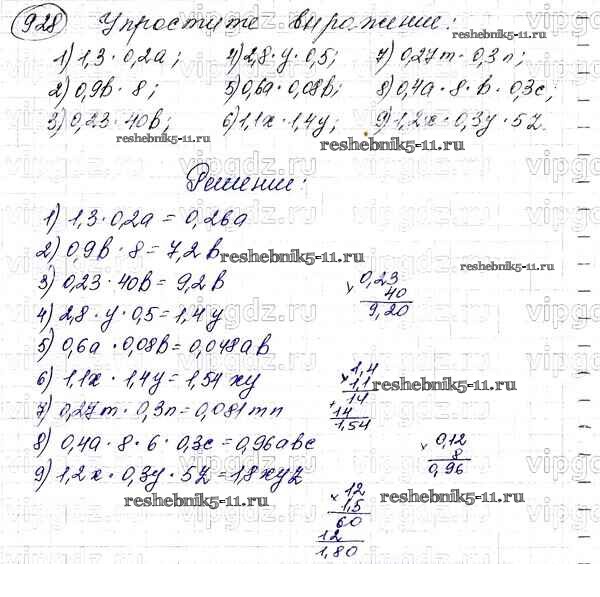 928 Упростите выражение:
1) 1,3 · 0,2a; 4) 2,8 · y · 0,5; 7) 0,27m · 0,3n;
2) 0,9b · 8; 5) 0,6a · 0,08b; 8) 0,4a · 8 · b · 0,3c;
3) 0,23 · 40b; 6) 1,1x · 1,4y; 9) 1,2x · 0,3y · 5z.
reshebnik5-11.ru reshebnik5-11.ru
Решение:
1) 1,3 · 0,2a = 0,26a
2) 0,9b · 8 = 7,2b
reshebnik5-11.ru reshebnik5-11.ru
3) 0,23 · 40b = 9,2b
4) 2,8 · y · 0,5 = 1,4y
5) 0,6a · 0,08b = 0,048ab
6) 1,1x · 1,4y = 1,54xy
7) 0,27m · 0,3n = 0,081mn
8) 0,4a · 8 · 6 · 0,3c = 0,96abc
9) 1,2x · 0,3y · 5z = 1,8xyz
reshebnik5-11.ru
0,23
× 40
9,20
1,4
× 1,1
14
+ 14
1,54
reshebnik5-11.ru
0,12
× 8
0,96
12
× 1,5
60
12
1,80
reshebnik5-11.ru
vipgdz.ru